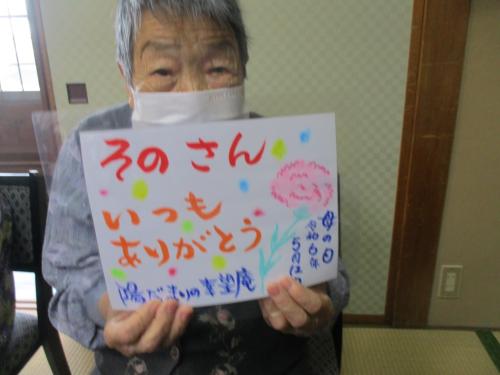 そのさん
いつも
ありがとう
母の日
令和6年
5月12日
陽だまりの幸望庵